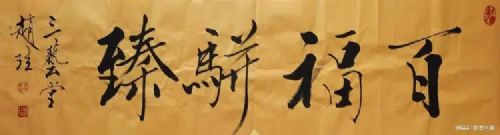 百福駢臻
三藝堂
趙強